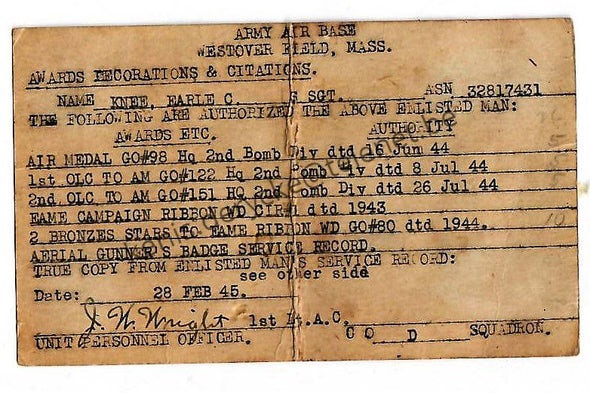 ARMY AIR BASE
WESTOVER FIELD, MASS.
AWARDS DECORATIONS & CITATIONS.
NAME KNEE, EARLE C. S SGT. ASN 32817431
THE FOLLOWING ARE AUTHORIZED THE ABOVE ENLISTED MAN:
AWARDS ETC. AUTHORITY
AIR MEDAL GO#98 Hq 2nd Bomb Div dtd 16 Jun 44
1st OLC TO AM GO#122 Hq 2nd Bomb Div dtd 8 Jul 44
2nd OLC TO AM GO#151 HQ 2nd Bomb Div dtd 26 Jul 44
EAME CAMPAIGN RIBBON WD CIR#1 dtd 1943
2 BRONZES STARS TO EAME RIBBON WD GO#80 dtd 1944.
AERIAL GUNNER'S BADGE SERVICE RECORD.
TRUE COPY FROM ENLISTED MAN'S SERVICE RECORD:
see other side
Date: 28 FEB 45.
J. W. Wright 1st Lt. A.C, CO D SQUADRON.
UNIT PERSONNEL OFFICER.